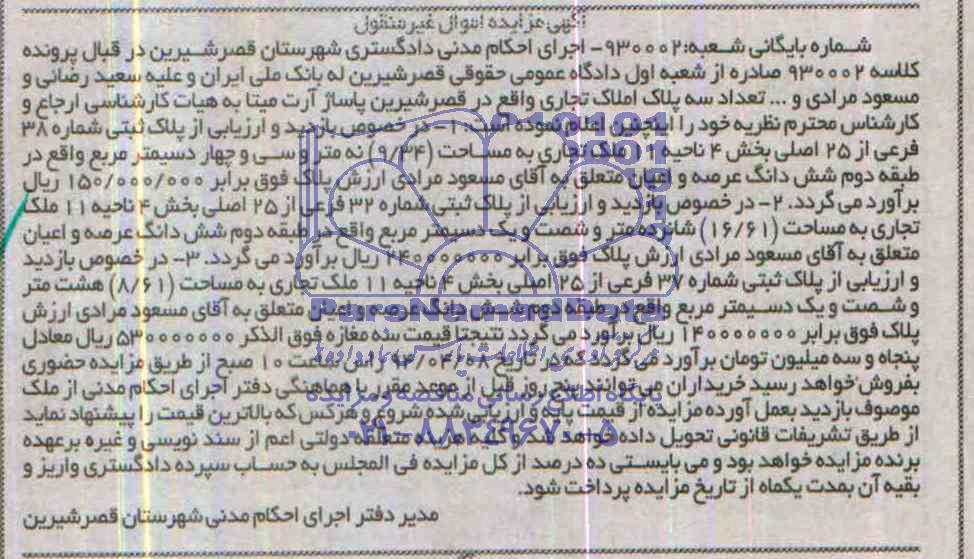 آگهی مزایده اموال غیر منقول
شماره بایگانی شعبه: ۹۳۰۰۰۲- اجرای احکام مدنی دادگستری شهرستان قصرشیرین در قبال پرونده
کلاسه ۹۳۰۰۰۲ صادره از شعبه اول دادگاه عمومی حقوقی قصرشیرین له بانک ملی ایران و علیه سعید رضائی و
مسعود مرادی و ... تعداد سه پلاک املاک تجاری واقع در قصرشیرین پاساژ آرت میتا به هیات کارشناسی ارجاع و
کارشناس محترم نظریه خود را اینچنین اعلام نموده است: ۱- در خصوص بازدید و ارزیابی از پلاک ثبتی شماره ۳۸
فرعی از ۲۵ اصلی بخش ۴ ناحیه ۱۱ ملک تجاری به مساحت (۹/۳۴) نه متر و سی و چهار دسیمتر مربع واقع در
طبقه دوم شش دانگ عرصه و اعیان متعلق به آقای مسعود مرادی ارزش پلاک فوق برابر ۱۵۰/۰۰۰/۰۰۰ ریال
برآورد می گردد. ۲- در خصوص بازدید و ارزیابی از پلاک ثبتی شماره ۳۲ فرعی از ۲۵ اصلی بخش ۴ ناحیه ۱۱ ملک
تجاری به مساحت (۱۶/۶۱) شانزده متر و شصت و یک دسیمتر مربع واقع در طبقه دوم شش دانگ عرصه و اعیان
متعلق به آقای مسعود مرادی ارزش پلاک فوق برابر ۲۴۰۰۰۰۰۰۰ ریال برآورد می گردد. ۳- در خصوص بازدید
و ارزیابی از پلاک ثبتی شماره ۳۷ فرعی از ۲۵ اصلی بخش ۴ ناحیه ۱۱ ملک تجاری به مساحت (۸/۶۱) هشت متر
و شصت و یک دسیمتر مربع واقع در طبقه دوم شش دانگ عرصه و اعیان متعلق به آقای مسعود مرادی ارزش
پلاک فوق برابر ۱۴۰۰۰۰۰۰۰ ریال برآورد می گردد نتیجتا قیمت سه مغازه فوق الذکر ۵۳۰۰۰۰۰۰۰ ریال معادل
پنجاه و سه میلیون تومان برآورد می گردد که در تاریخ ۹۴/۰۴/۰۸ راس ساعت ۱۰ صبح از طریق مزایده حضوری
بفروش خواهد رسید خریداران می توانند پنج روز قبل از موعد مقرر با هماهنگی دفتر اجرای احکام مدنی از ملک
موصوف بازدید بعمل آورده مزایده از قیمت پایه و ارزیابی شده شروع و هرکس که بالاترین قیمت را پیشنهاد نماید
از طریق تشریفات قانونی تحویل داده خواهد شد و کلیه هزینه متعلقه دولتی اعم از سند نویسی و غیره برعهده
برنده مزایده خواهد بود و می بایستی ده درصد از کل مزایده فی المجلس به حساب سپرده دادگستری واریز و
بقیه آن بمدت یکماه از تاریخ مزایده پرداخت شود.
مدیر دفتر اجرای احکام مدنی شهرستان قصرشیرین
ParsNamadData
پایگاه اطلاع رسانی مناقصه و مزایده
۰۲۱-۸۸۳۴۹۶۷۰-۵